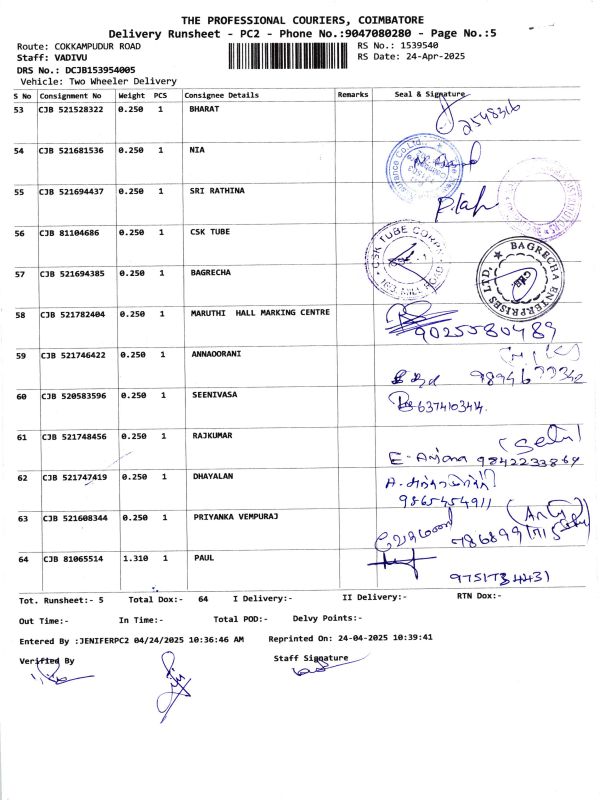 THE PROFESSIONAL COURIERS, COIMBATORE
Delivery Runsheet - PC2 - Phone No.:9047080280 - Page No.:5
Route: COKKAMPUDUR ROAD RS No.: 1539540
Staff: VADIVU RS Date: 24-Apr-2025
DRS No.: DCJB153954005
Vehicle: Two Wheeler Delivery
S No Consignment No Weight PCS Consignee Details Remarks Seal & Signature
53 CJB 521528322 0.250 1 BHARAT
2548316
54 CJB 681536 0.250 1 NIA
55 CJB 521694437 0.250 1 SRI RATHINA
56 CJB 81104686 0.250 1 CSK TUBE
CSK TUBE
57 CJB 521694385 0.250 1 BAGRECHA
BAGRECHA ENTERPRISES LTD.
58 CJB 521782404 0.250 1 MARUTHI HALL MARKING CENTRE
9025580489
59 CJB 521746422 0.250 1 ANNAOORANI
60 CJB 520583596 0.250 1 SEENIVASA
6374103414
61 CJB 521748456 0.250 1 RAJKUMAR
E-Anjana 9842233869
62 CJB 521747419 0.250 1 DHAYALAN
9865454911
63 CJB 521608344 0.250 1 PRIYANKA VEMPURAJ
64 CJB 81065514 1.310 1 PAUL
9751734431
Tot. Runsheet:- 5 Total Dox:- 64 I Delivery:- II Delivery:- RTN Dox:-
Out Time:- In Time:- Total POD:- Delvy Points:-
Entered By :JENIFERPC2 04/24/2025 10:36:46 AM Reprinted On: 24-04-2025 10:39:41
Verified By Staff Signature